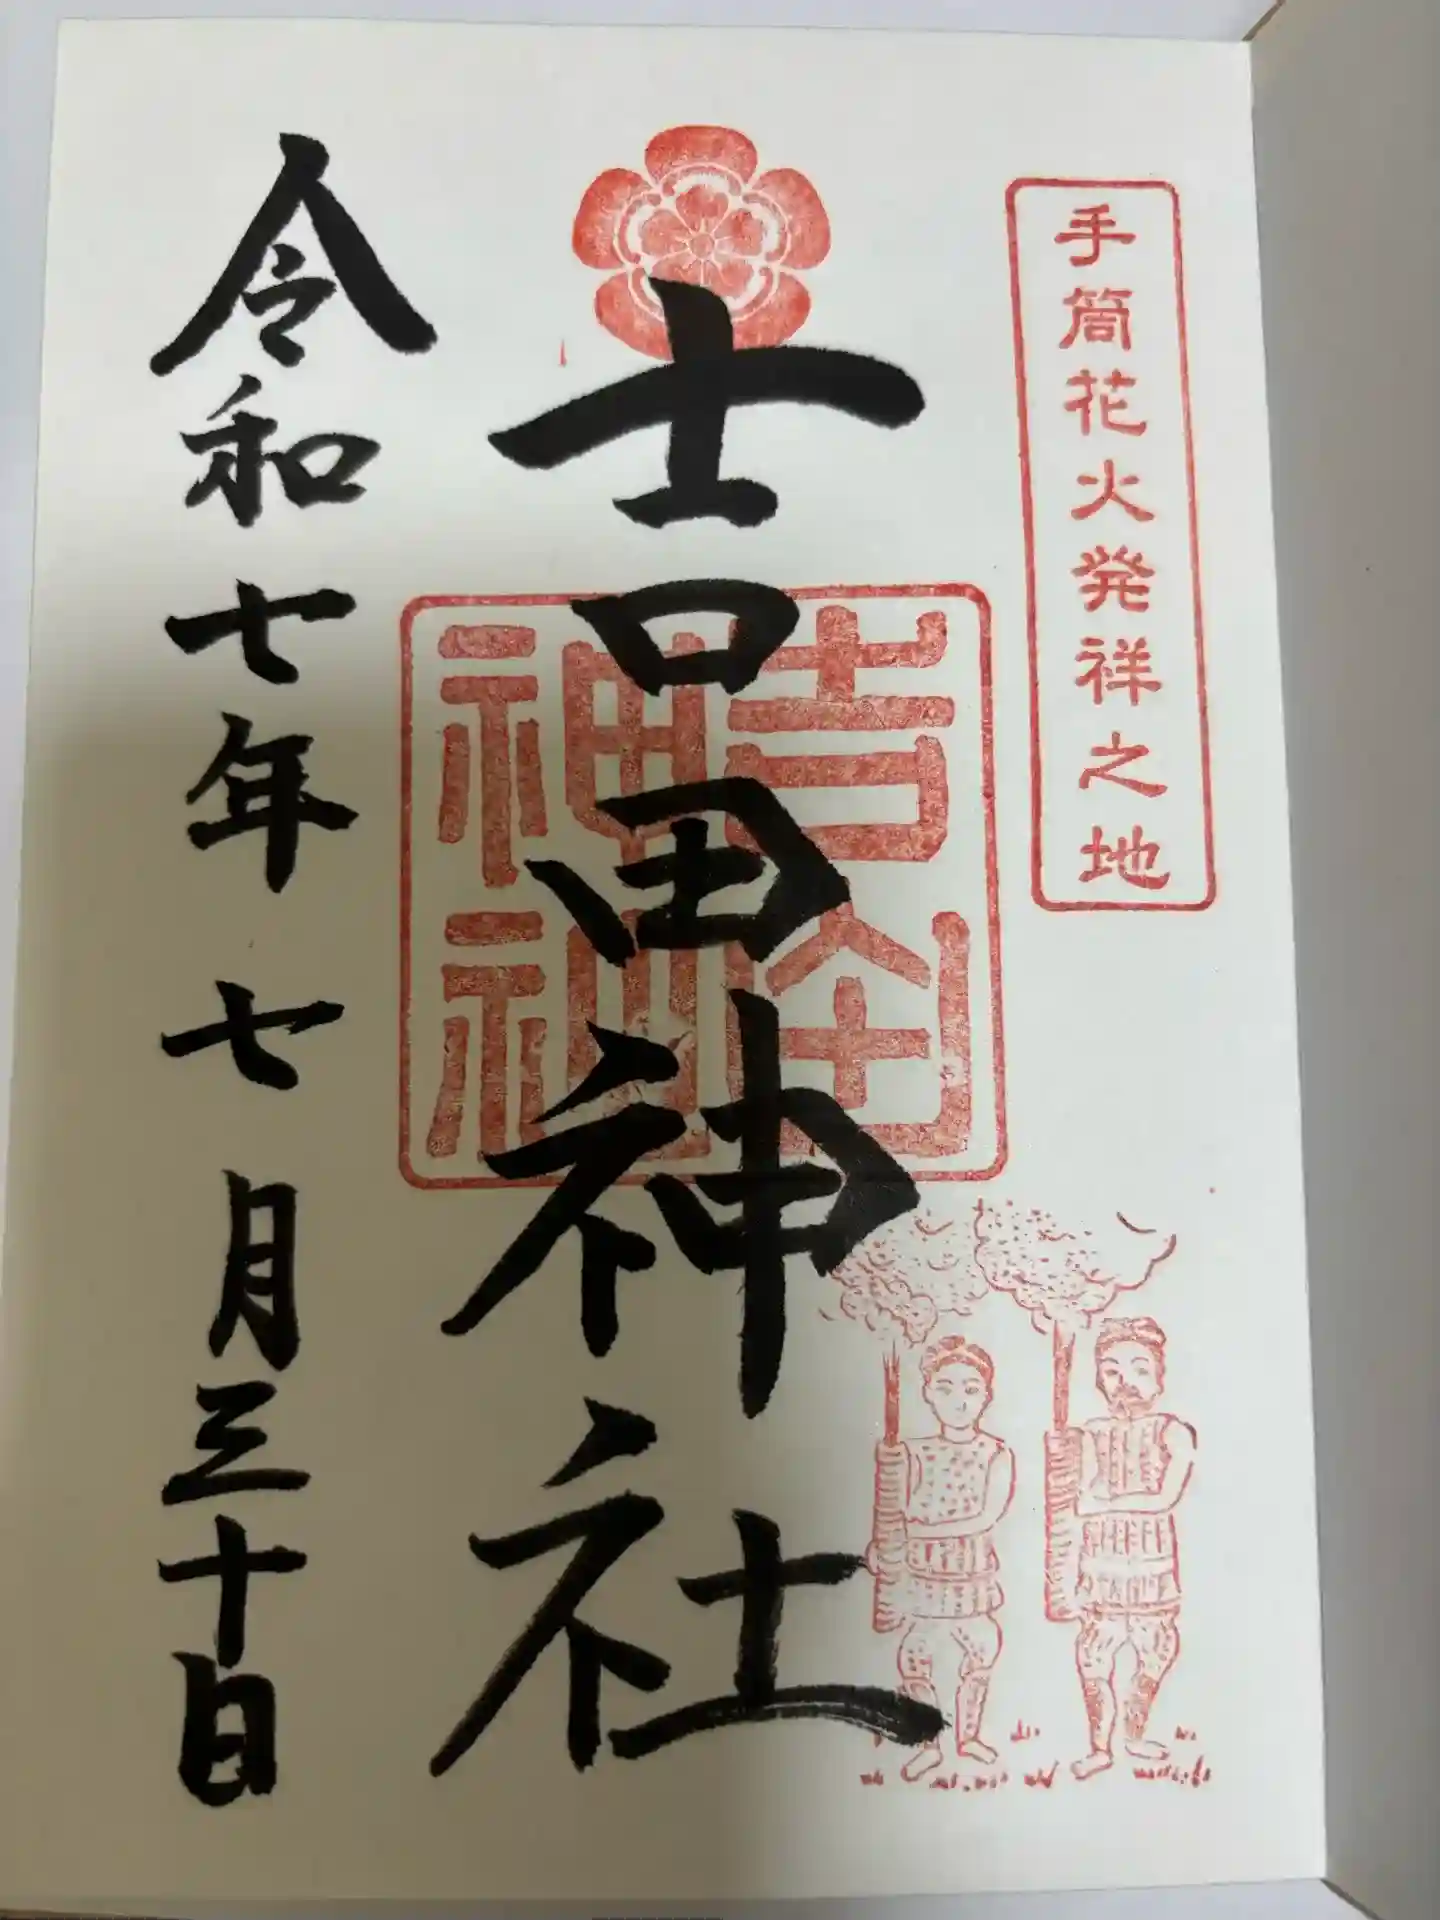 手筒花火発祥之地
吉田神社
吉田
神社
令和七年七月三十日